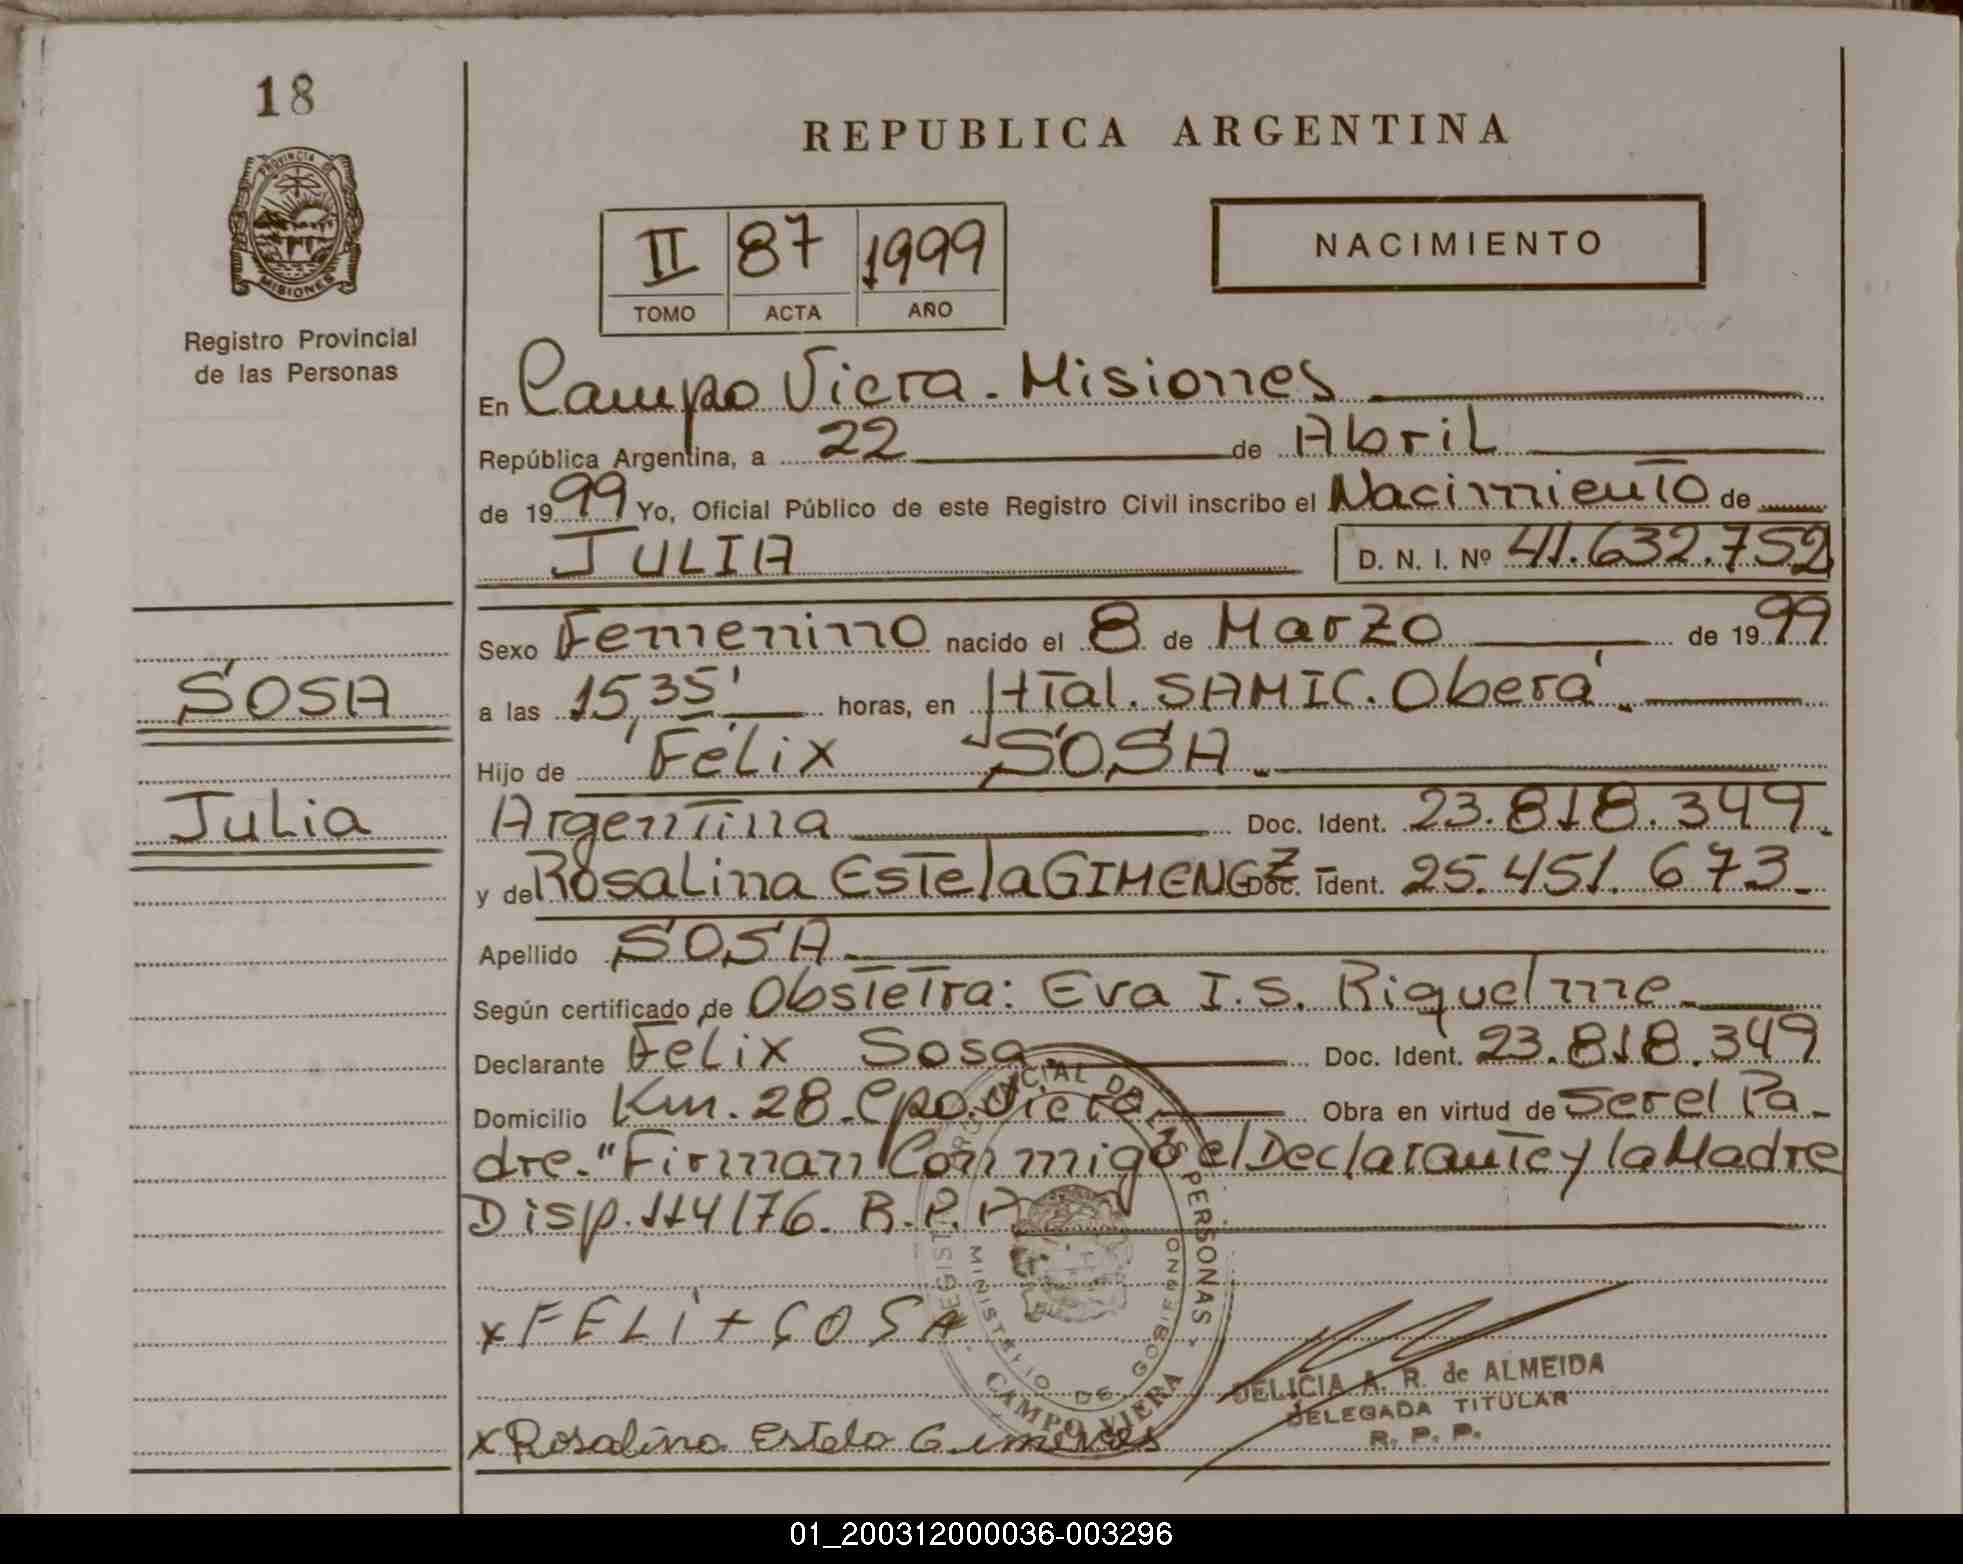 18
PROVINCIA DE
MISIONES
Registro Provincial
de las Personas
REPUBLICA ARGENTINA
II 87 1999
TOMO ACTA AÑO
NACIMIENTO
En Campo Viera - Misiones
República Argentina, a 22 de Abril
de 1999 Yo, Oficial Público de este Registro Civil inscribo el Nacimiento de
JULIA D. N. I. Nº 41.632.752
Sexo Femenino nacido el 8 de Marzo de 1999
SOSA
a las 15,35' horas, en Htal. SAMIC. Oberá
Hijo de Félix SOSA
Julia
Argentina Doc. Ident. 23.818.349
y de Rosalina Estela GIMENEZ Doc. Ident. 25.451.673
Apellido SOSA
Según certificado de Obstetra: Eva I. S. Riquelme
Declarante Felix Sosa Doc. Ident. 23.818.349
Domicilio Km. 28 - Cpo. Viera Obra en virtud de Ser el Pa-
dre. "Firman Conmigo el Declarante y la Madre
Disp. 114/76. R.P.P.
REGISTRO PROVINCIAL DE LAS PERSONAS
MINISTERIO DE GOBIERNO
CAMPO VIERA
x FELIX SOSA
DELICIA A. R. de ALMEIDA
DELEGADA TITULAR
R. P. P.
x Rosalina Estela Gimenes
01_200312000036-003296